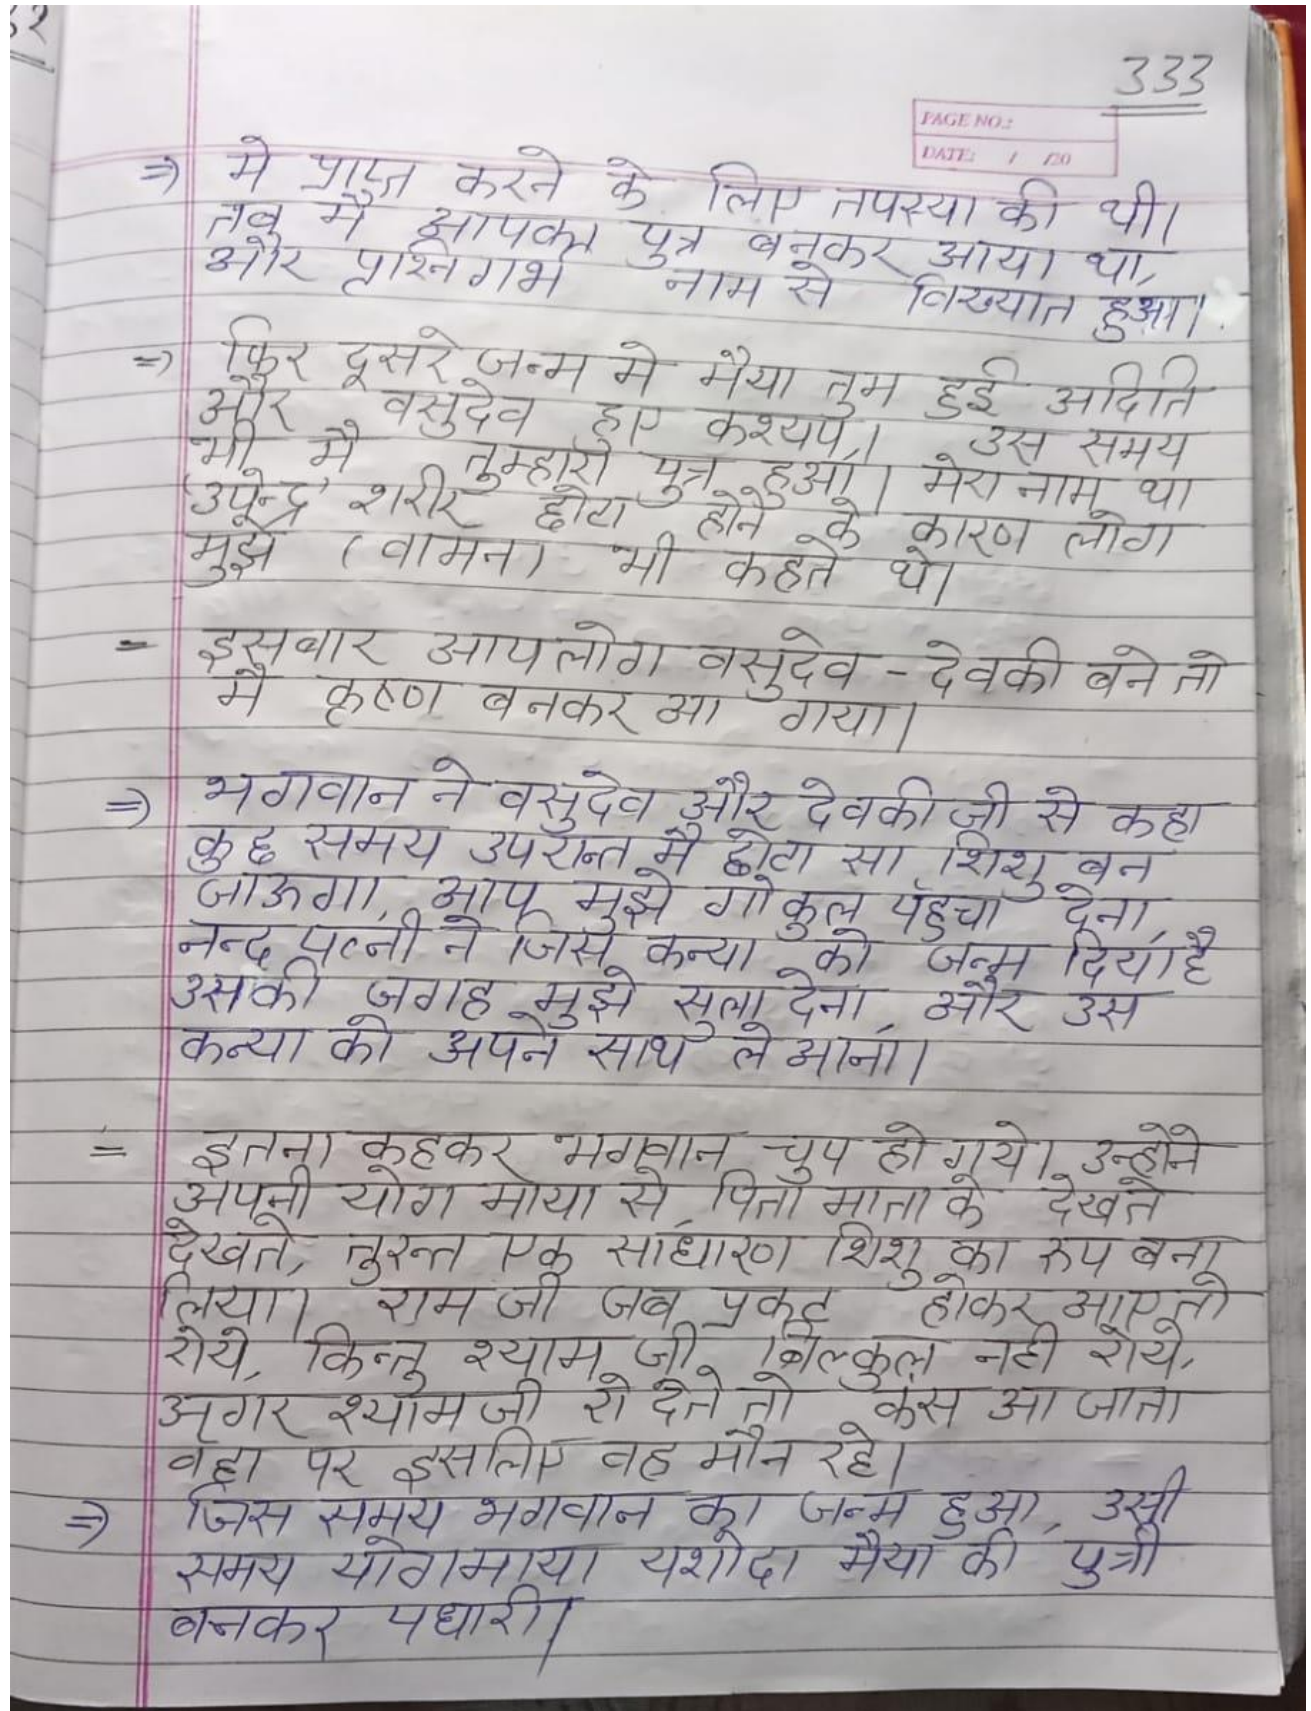 333
PAGE NO.:
DATE: / /20
⇒ मे प्राप्त करने के लिए तपस्या की थी।
तब मै आपका पुत्र बनकर आया था,
और प्रश्निगर्भ नाम से विख्यात हुआ।
⇒ फिर दूसरे जन्म मे मैया तुम हुई अदिति
और वसुदेव हुए कश्यप। उस समय
भी मै तुम्हारा पुत्र हुआ। मेरा नाम था
'उपेन्द्र' शरीर छोटा होने के कारण लोग
मुझे (वामन) भी कहते थे।
- इसबार आपलोग वसुदेव - देवकी बने तो
मै कृष्ण बनकर आ गया।
⇒ भगवान ने वसुदेव और देवकी जी से कहा
कुछ समय उपरान्त मै छोटा सा शिशु बन
जाऊगा, आप मुझे गोकुल पहुंचा देना,
नन्द पत्नी ने जिस कन्या को जन्म दिया है
उसकी जगह मुझे सुला देना, और उस
कन्या को अपने साथ ले आना।
= इतना कहकर भगवान चुप हो गये। उन्होने
अपनी योग माया से, पिता माता के देखते
देखते, तुरन्त एक साधारण शिशु का रूप बना
लिया। राम जी जब प्रकट होकर आए तो
रोये, किन्तु श्याम जी बिल्कुल नही रोये,
अगर श्याम जी रो देते तो कंस आ जाता
वहा पर इसलिए वह मौन रहे।
⇒ जिस समय भगवान का जन्म हुआ, उसी
समय योगमाया यशोदा मैया की पुत्री
बनकर पधारी।